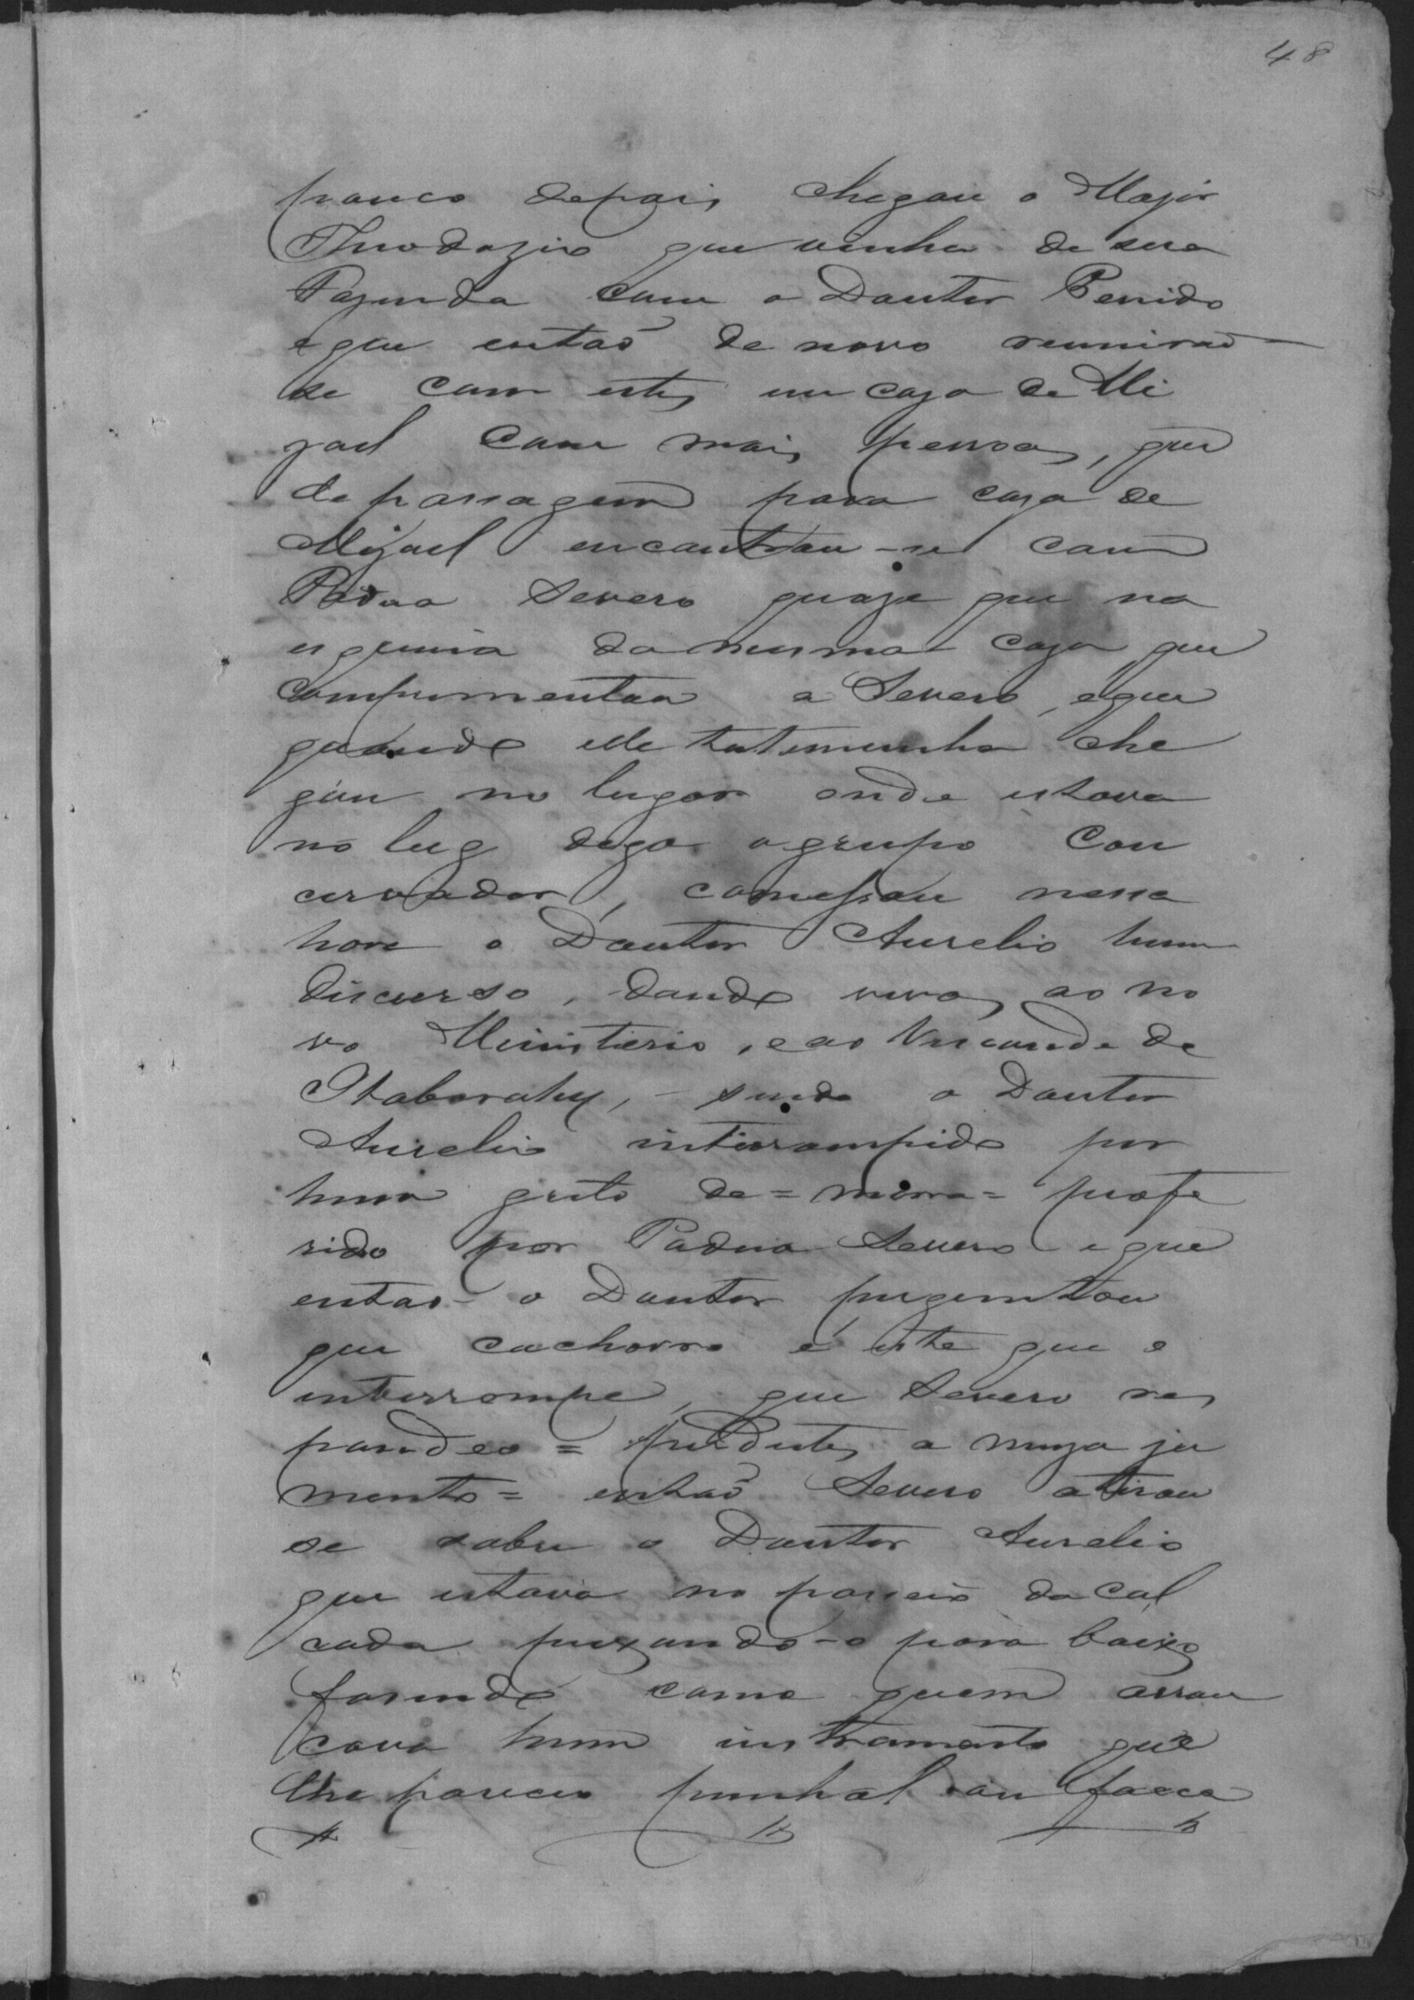 48
pouco depois chegou o Major
Theodozio que vinha de sua
Fazenda com o Doutor Penido
e que então de novo reunirão
se com estes em caza de Mi
zael com mais pessoas, que
de passagem para caza de
Mizael encontrou-se com
Padua Severo quaze que na
esquina da mesma caza que
comprimentou a Severo, e que
quando elle testemunha che
gou no lugar onde estava
no lug digo o grupo Con
cervador, comessou nessa
hora o Doutor Aurelio hum
discurso, dando vivas ao no
vo Ministerio, e ao Visconde de
Itaborahy, - sendo o Doutor
Aurelio interrompido por
hum grito de = morra = profe
rido por Padua Severo e que
então o Doutor perguntou
que cachorro é este que o
interrompe, que Severo res
pondeo = a
mento = então Severo atirou
se sobre o Doutor Aurelio
que estava no passeio da cal
cada puxando-o para baixo
fasendo como quem arran
cava hum instromento que
lhe pareceo punhal ou facca